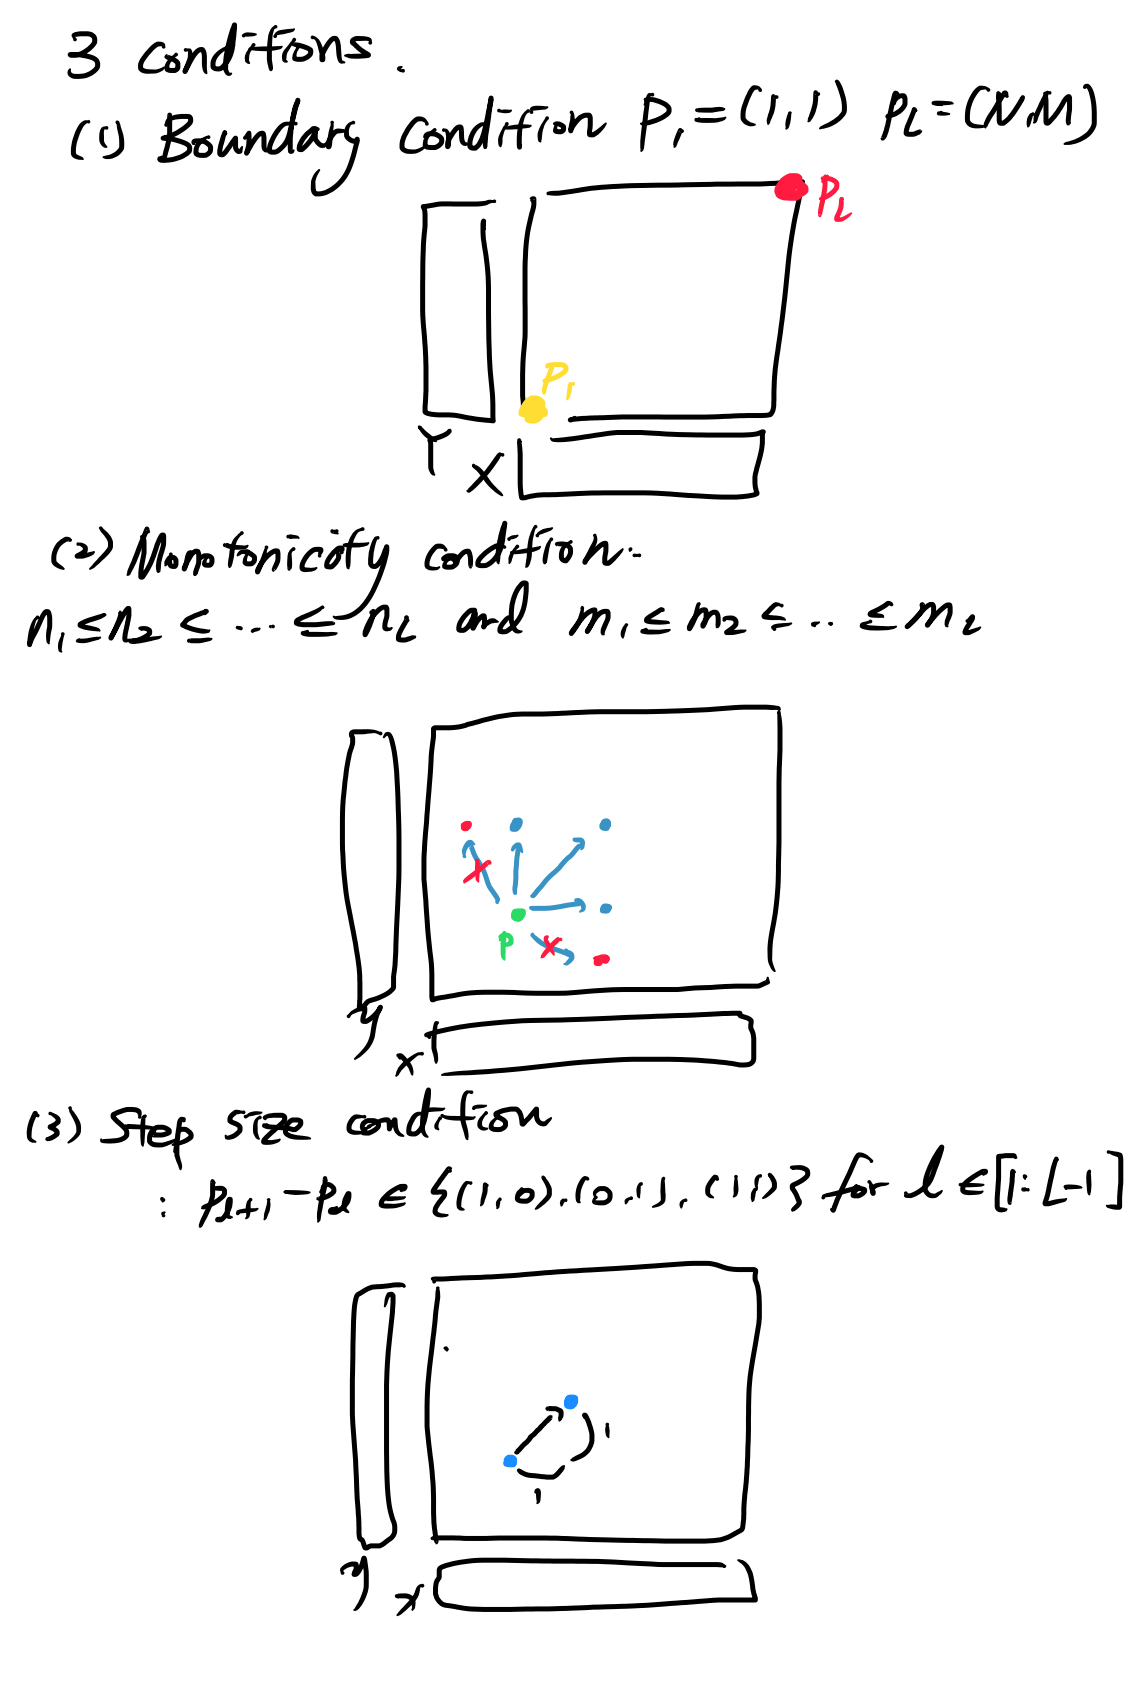 3 conditions.
(1) Boundary condition P₁ = (1,1) P_L = (N,M)
P_L
P₁
Y
X
(2) Monotonicity condition.
n₁ ≤ n₂ ≤ ... ≤ n_L and m₁ ≤ m₂ ≤ .. ≤ m_L
P
y
x
(3) Step size condition
: p_{l+1} - p_l ∈ {(1,0),(0,1),(1,1)} for l ∈ [1:L-1]
1
1
y
x